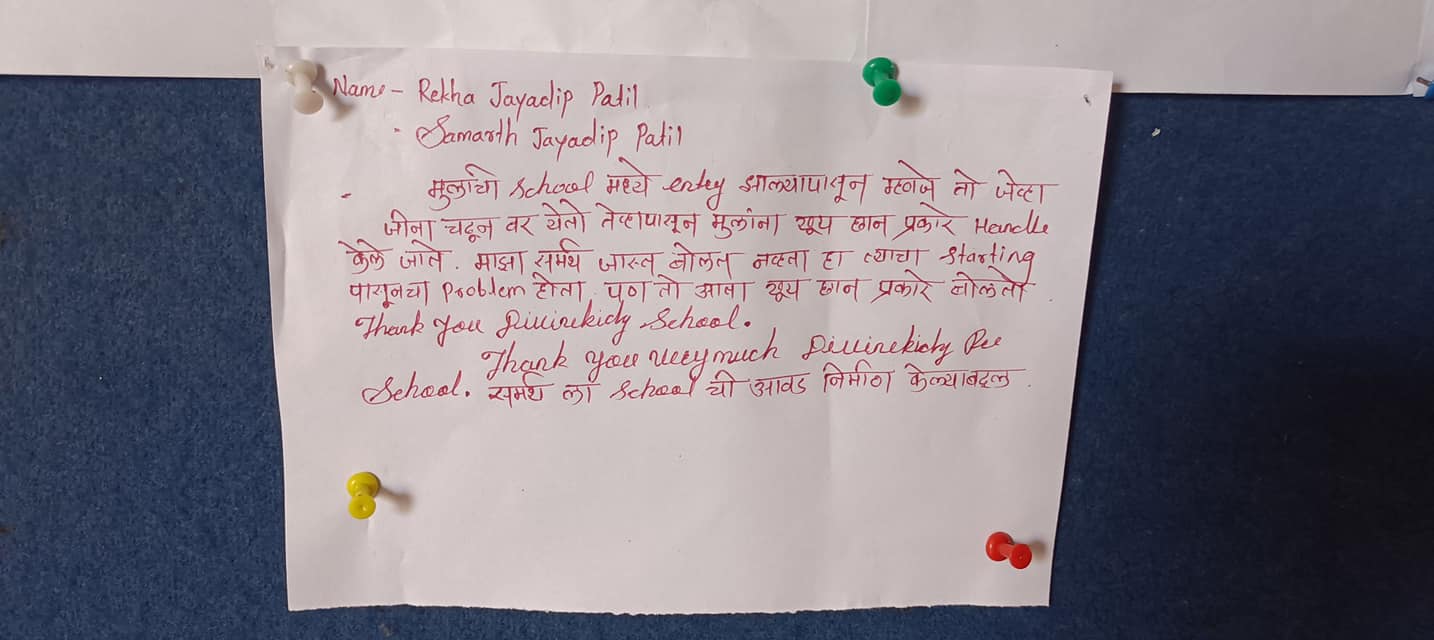 Name - Rekha Jayadip Patil.
- Samarth Jayadip Patil
- मुलांची school मध्ये entry झाल्यापासून म्हणजे तो जेव्हा
जीना चढून वर येतो तेव्हापासून मुलांना खूप छान प्रकारे Handle
केले जाते. माझा समर्थ जास्त बोलत नव्हता हा त्याचा starting
पासूनचा problem होता. पण तो आता खूप छान प्रकारे बोलतो.
Thank you Divinekidy School.
Thank you very much Divinekidy Pre
School. समर्थ ला school ची आवड निर्माण केल्याबद्दल.